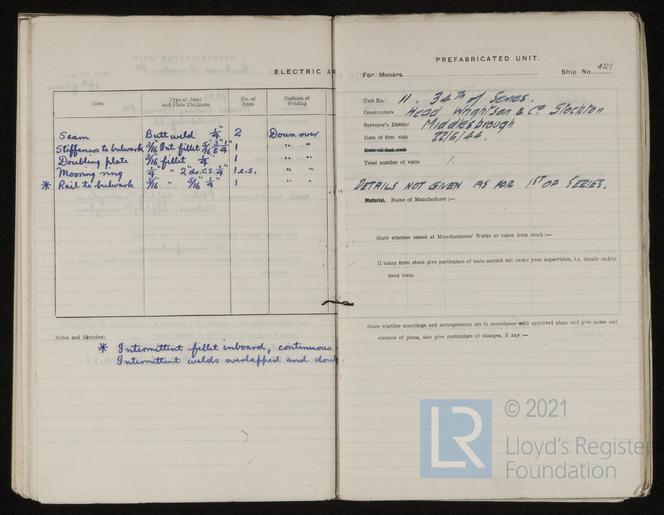 ELECTRIC AR
Item Type of Joint and Plate Thickness No. of Runs Position of Welding
Seam Butt weld 1/4" 2 Down over
Stiffeners to bulwark 3/16 Int. fillet 1 " "
Doubling plate 3/16 fillet 1/4" 1 " "
Mooring ring 1/4 " 1 d.s. " "
* Rail to bulwark 5/16 " 5/16 1/4" 1 " "
Notes and Sketches:
* Intermittent fillet inboard, continuous
Intermittent welds overlapped and
PREFABRICATED UNIT.
For Messrs. Ship No. 421
Unit No. 11. 34th of Series.
Constructors Head Wrightson & Co. Stockton
Surveyor's District Middlesbrough
Date of first visit 22/6/44.
Date of last visit
Total number of visits 1.
DETAILS NOT GIVEN AS FOR 1ST OF SERIES.
Material. Name of Manufacturer :—
State whether tested at Manufacturers' Works or taken from stock :—
If taken from stock give particulars of tests carried out under your supervision, i.e. tensile and/or
bend tests.
State whether scantlings and arrangements are in accordance with approved plans and give name and
number of plans, also give particulars of changes, if any :—
LR
© 2021
Lloyd's Register
Foundation